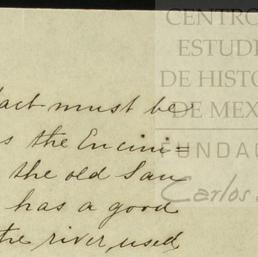 CENTRO
ESTUDI
DE HISTO
DE MEX
FUNDAC
Carlos S
fact must be
s the Encini=
the old San
has a good
the river, used